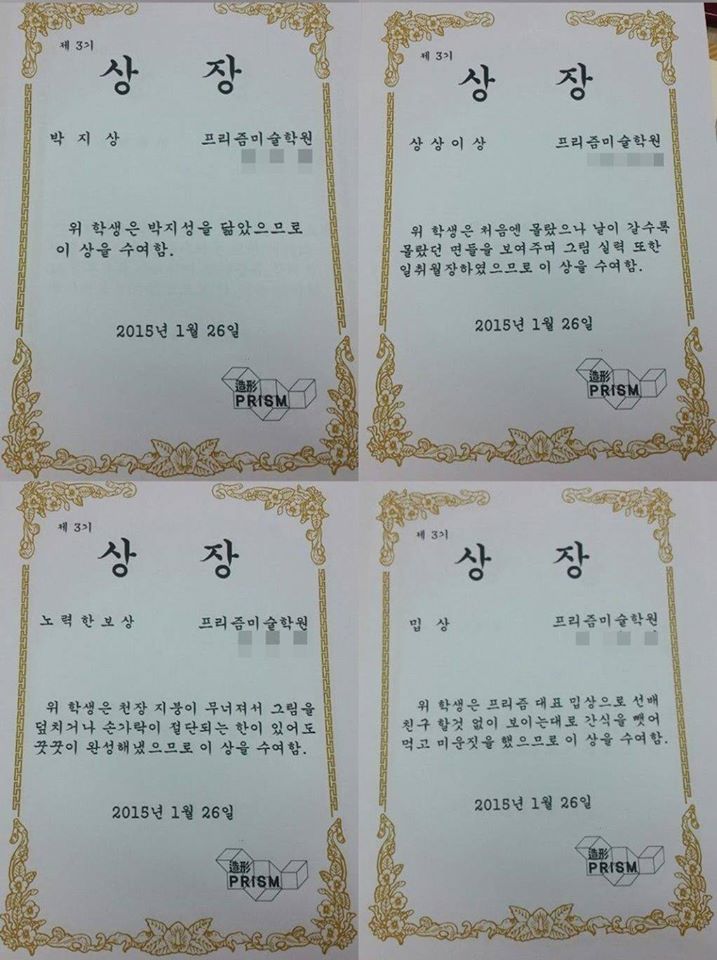 제 3기
상 장
박 지 상 프리즘미술학원
위 학생은 박지성을 닮았으므로
이 상을 수여함.
2015년 1월 26일
造形
PRISM
제 3기
상 장
상 상 이 상 프리즘미술학원
위 학생은 처음엔 몰랐으나 날이 갈수록
몰랐던 면들을 보여주며 그림 실력 또한
일취월장하였으므로 이 상을 수여함.
2015년 1월 26일
造形
PRISM
제 3기
상 장
노 력 한 보 상 프리즘미술학원
위 학생은 천장 지붕이 무너져서 그림을
덮치거나 손가락이 절단되는 한이 있어도
꿋꿋이 완성해냈으므로 이 상을 수여함.
2015년 1월 26일
造形
PRISM
제 3기
상 장
밉 상 프리즘미술학원
위 학생은 프리즘 대표 밉상으로 선배
친구 할것 없이 보이는대로 간식을 뺏어
먹고 미운짓을 했으므로 이 상을 수여함.
2015년 1월 26일
造形
PRISM